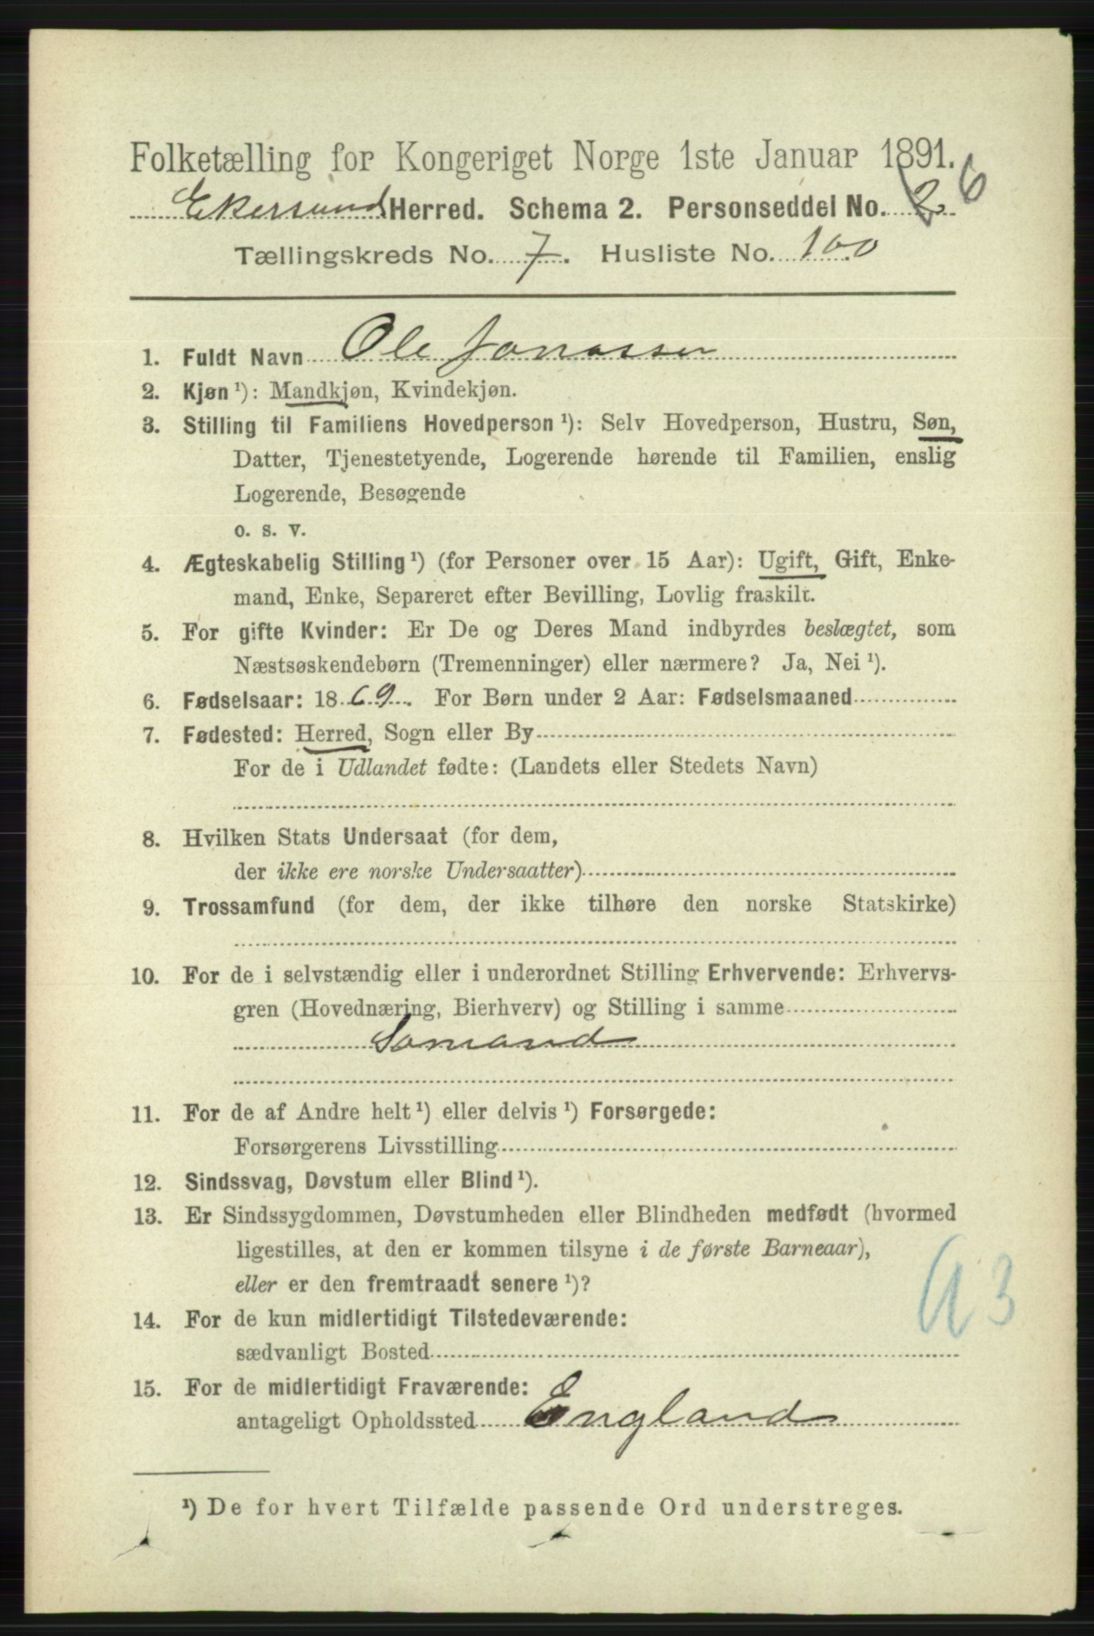 Folketælling for Kongeriget Norge 1ste Januar 1891.
Ekersund Herred. Schema 2. Personseddel No. 2 6
Tællingskreds No. 7. Husliste No. 100
1. Fuldt Navn Ole Jonassen
2. Kjøn ¹): Mandkjøn, Kvindekjøn.
3. Stilling til Familiens Hovedperson ¹): Selv Hovedperson, Hustru, Søn,
Datter, Tjenestetyende, Logerende hørende til Familien, enslig
Logerende, Besøgende
o. s. v.
4. Ægteskabelig Stilling ¹) (for Personer over 15 Aar): Ugift, Gift, Enke-
mand, Enke, Separeret efter Bevilling, Lovlig fraskilt.
5. For gifte Kvinder: Er De og Deres Mand indbyrdes beslægtet, som
Næstsøskendebørn (Tremenninger) eller nærmere? Ja, Nei ¹).
6. Fødselsaar: 1869. For Børn under 2 Aar: Fødselsmaaned
7. Fødested: Herred, Sogn eller By
For de i Udlandet fødte: (Landets eller Stedets Navn)
8. Hvilken Stats Undersaat (for dem,
der ikke ere norske Undersaatter)
9. Trossamfund (for dem, der ikke tilhøre den norske Statskirke)
10. For de i selvstændig eller i underordnet Stilling Erhvervende: Erhvervs-
gren (Hovednæring, Bierhverv) og Stilling i samme
Sømand
11. For de af Andre helt ¹) eller delvis ¹) Forsørgede:
Forsørgerens Livsstilling
12. Sindssvag, Døvstum eller Blind ¹).
13. Er Sindssygdommen, Døvstumheden eller Blindheden medfødt (hvormed
ligestilles, at den er kommen tilsyne i de første Barneaar),
eller er den fremtraadt senere ¹)?
14. For de kun midlertidigt Tilstedeværende:
sædvanligt Bosted
15. For de midlertidigt Fraværende:
antageligt Opholdssted England
¹) De for hvert Tilfælde passende Ord understreges.